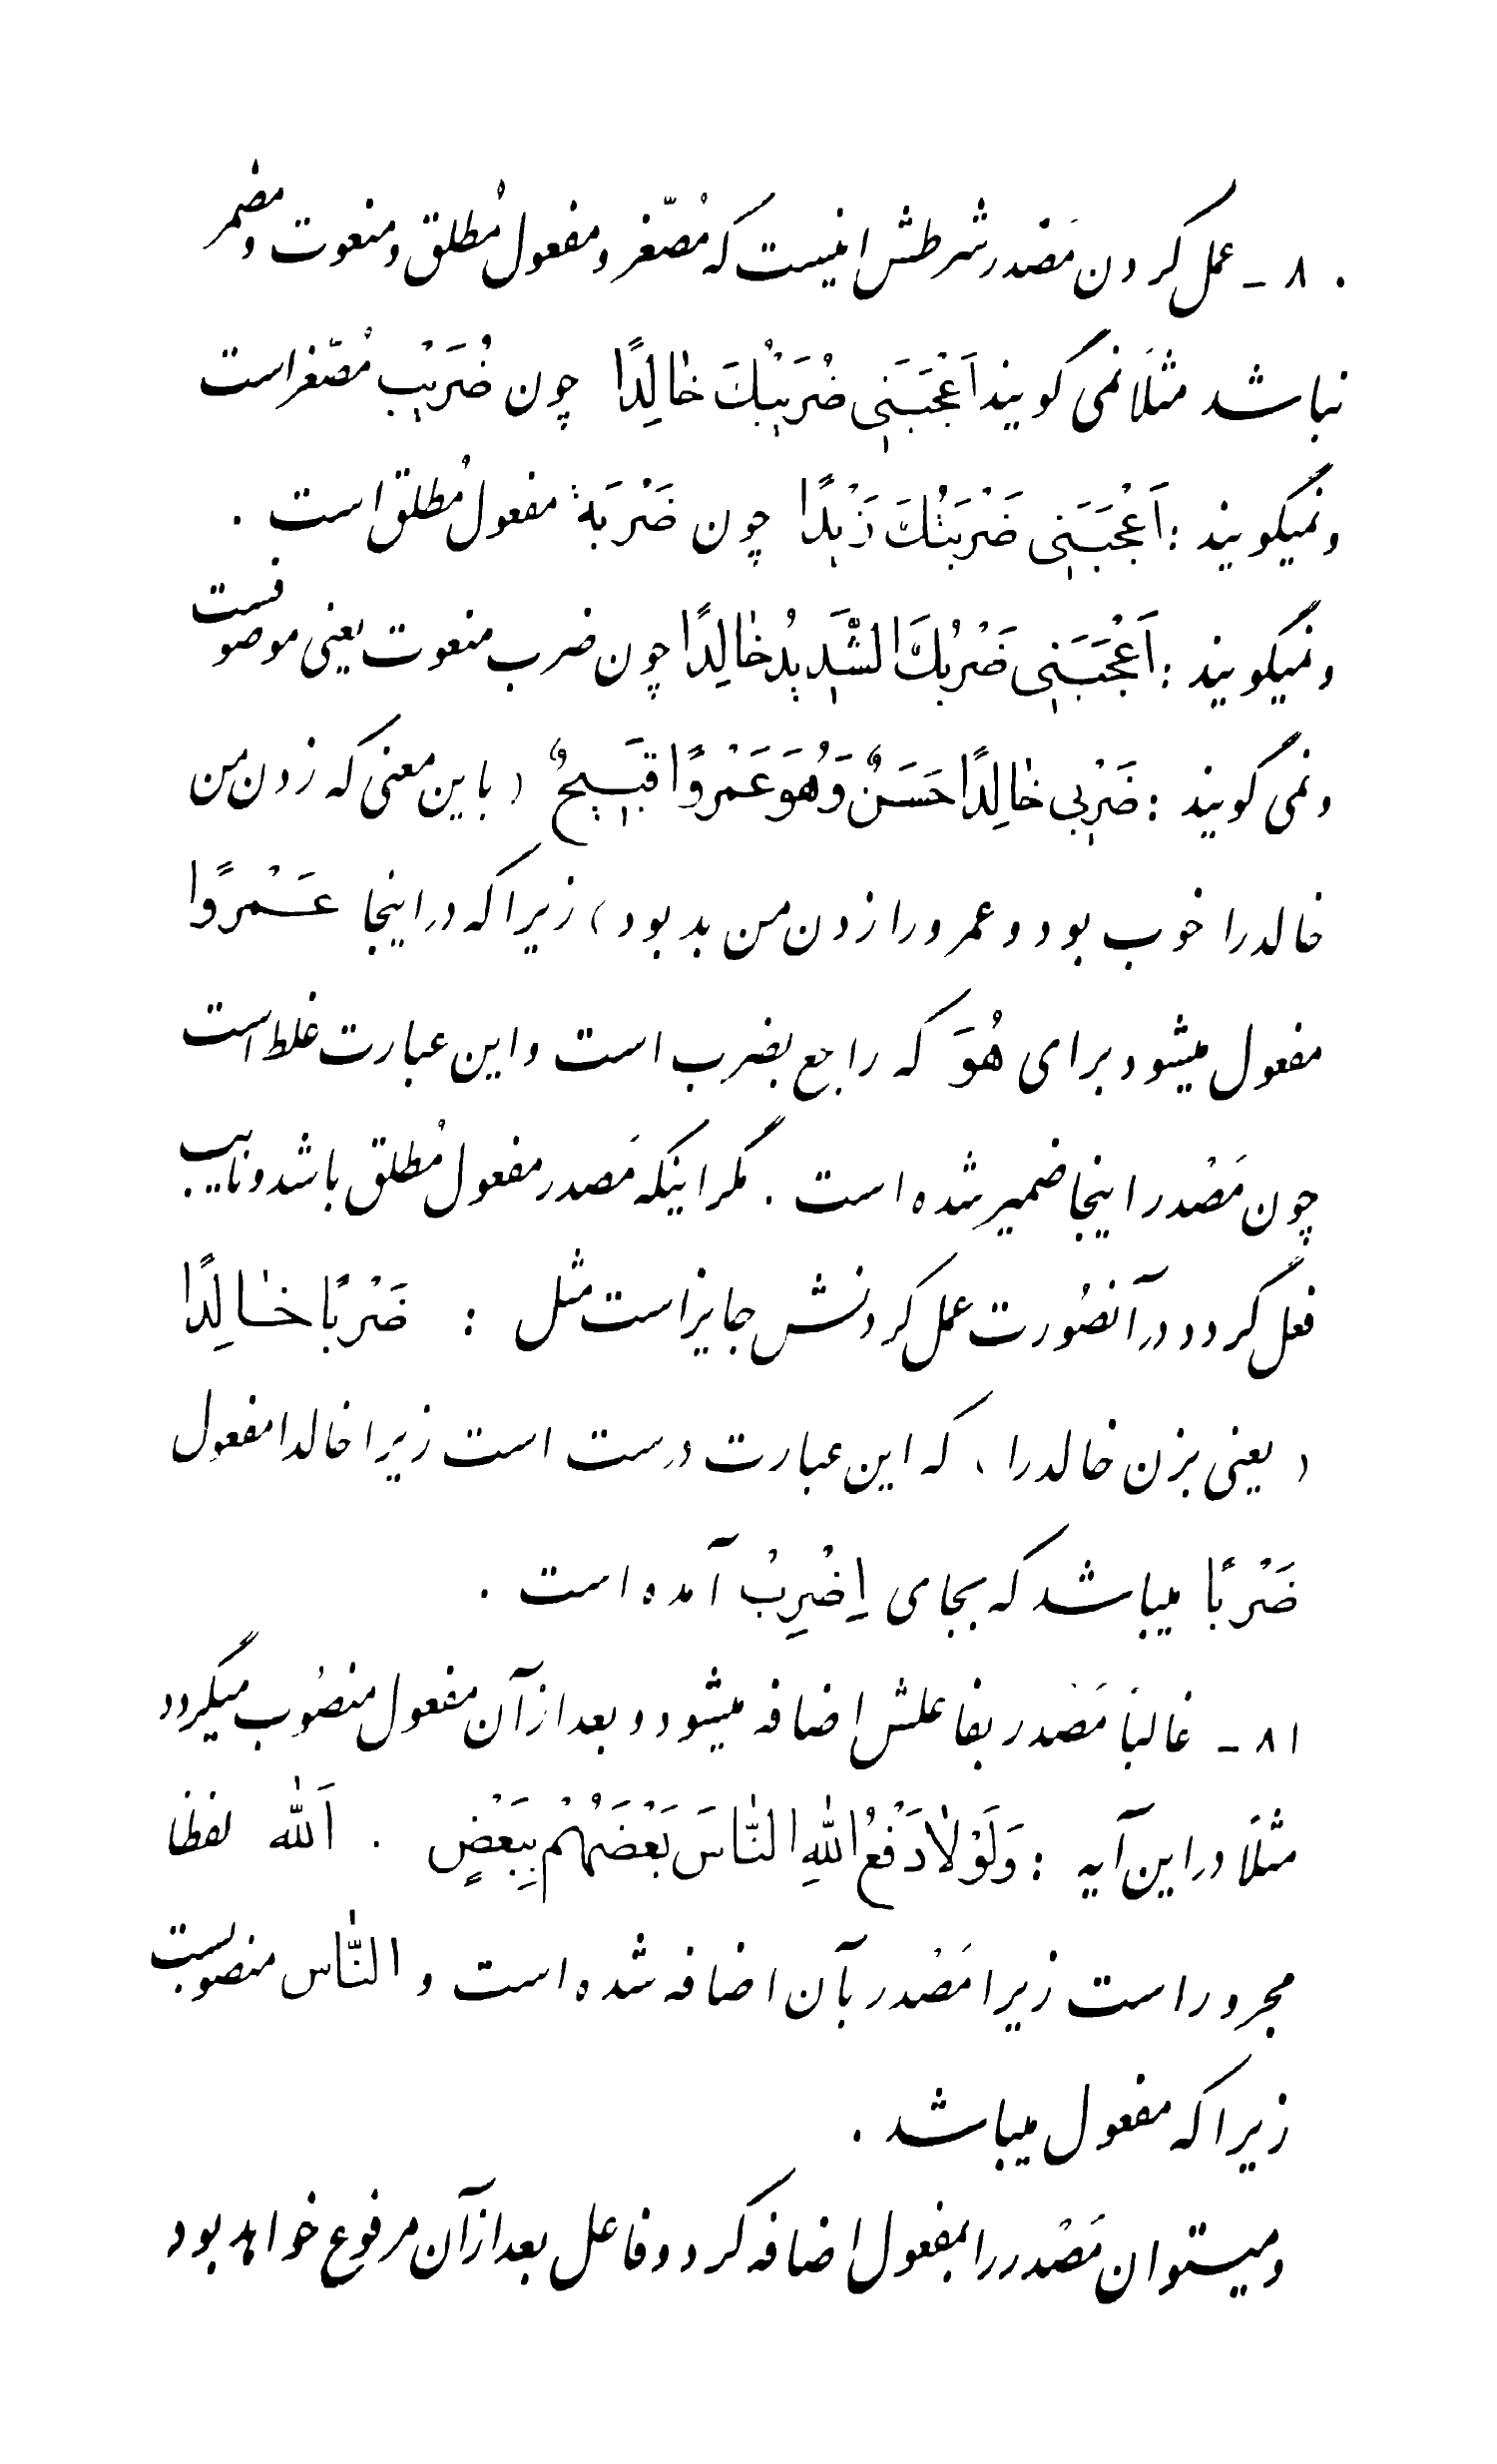 ۸۰ - عمل کردن مَصْدر شرطش اینست که مُصّغر و مفعول مُطلق و منعوت و مضمر
نباشد مثلاً نمی گویند اَعْجَبَنِی ضُرَیْبُكَ خٰالِدًا چون ضُرَیْب مُصّغر است
و نمیگویند : اَعْجَبَنِی ضَرْبَتُكَ زَیْدًا چون ضَرْبَة مفعول مُطلق است .
و نمیگویند : اَعْجَبَنِی ضَرْبُكَ الشَّدِیدُ خٰالِدًا چون ضرب منعوت یعنی موصوفست
و نمی گویند : ضَرْبِی خٰالِدًا حَسَنٌ وَ هُوَ عَمْروًا قَبِیحٌ ( باین معنی که زدن من
خالد را خوب بود و عمرو را زدن من بد بود ) زیرا که در اینجا عَمْروًا
مفعول میشود برای هُوَ که راجع بضرب است و این عبارت غلط است
چون مَصْدر اینجا ضمیر شده است . مگر اینکه مَصدر مفعول مُطلق باشد و نایب
فعل گردد در آنصُورت عمل کردنش جایز است مثل : ضَرْبًا خٰالِدًا
( یعنی بزن خالد را ) که این عبارت درست است زیرا خالدا مفعول
ضَرْبًا میباشد که بجای اِضْرِبْ آمده است .
۸۱ - غالباً مَصْدر بفاعلش اضافه میشود و بعد از آن مفعول منصُوب میگردد
مثلاً در این آیه : وَلَوْلٰا دَفْعُ اللهِ النّٰاسَ بَعْضَهُمْ بِبَعْضٍ . اَلله لفظا
مجرور است زیرا مَصْدر بآن اضافه شده است و النّٰاس منصوبست
زیرا که مفعول میباشد .
و میتوان مَصْدر را بمفعول اضافه کرد و فاعل بعد از آن مرفوع خواهد بود